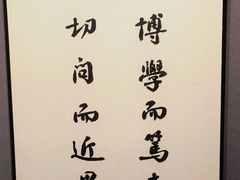 博學而篤
切问而近